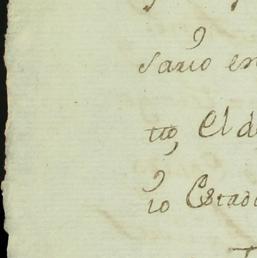 sario en
tto, El d
io Estad